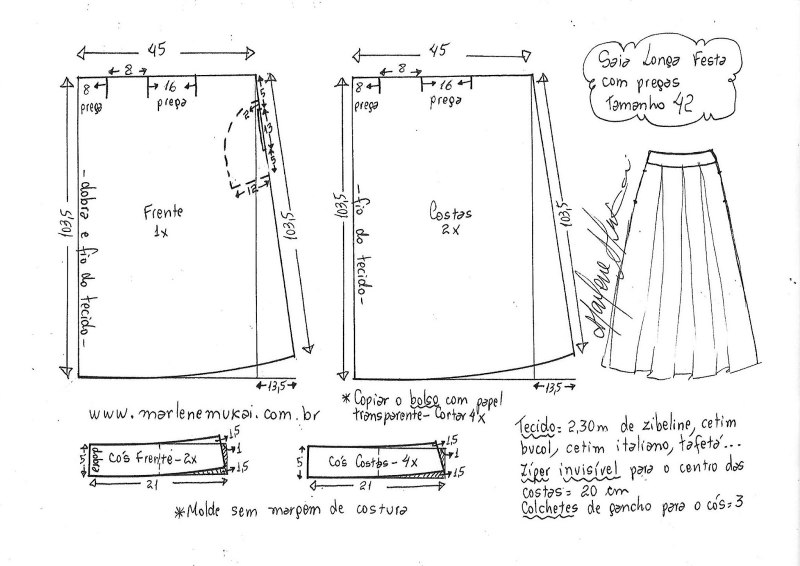 45
8
8
preça
16
preça
5
2
13
5
12
103,5
- dobra e fio do tecido -
Frente
1x
103,5
13,5
45
8
8
preça
16
preça
103,5
- fio do tecido -
Costas
2x
103,5
13,5
Saia Longa Festa
com preças
Tamanho 42
Marlene Mukai
www.marlenemukai.com.br
* Copiar o bolso com papel
transparente - Cortar 4x
5
dobra
Cós Frente - 2x
1,5
1
1,5
21
5
Cós Costas - 4x
1,5
1
1,5
21
* Molde sem marçem de costura
Tecido = 2,30m de zibeline, cetim
bucol, cetim italiano, tafetá...
Zíper invisível para o centro das
costas = 20 cm
Colchetes de gancho para o cós = 3